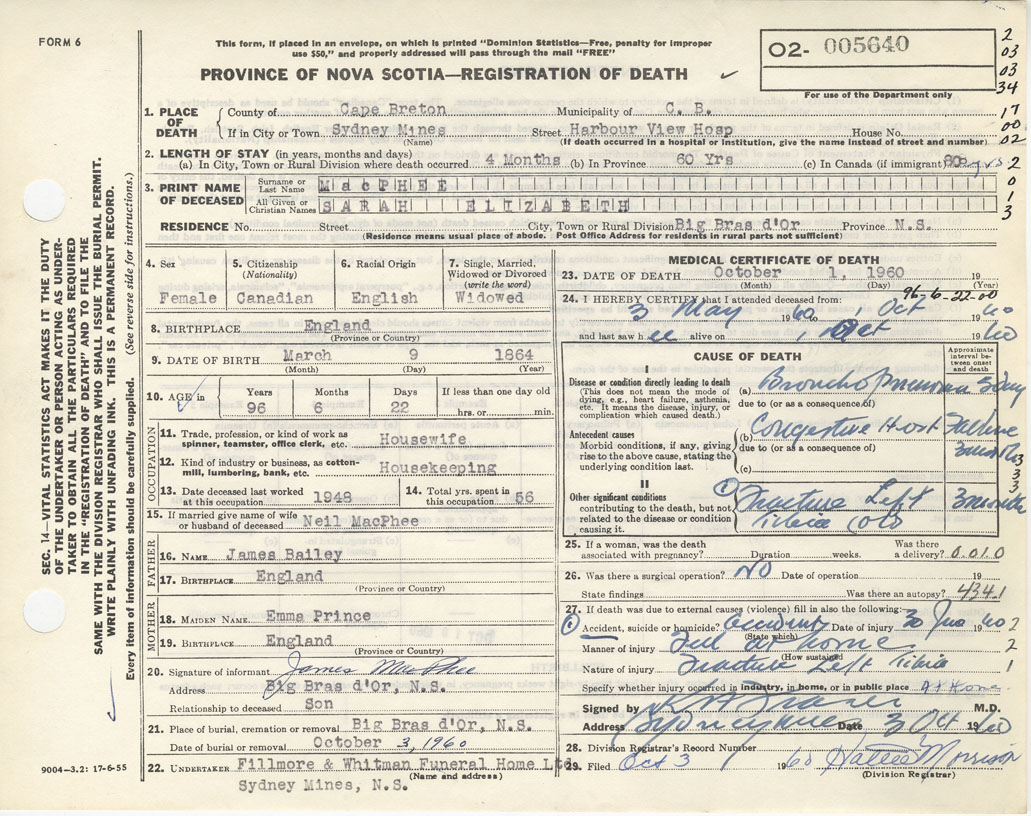 FORM 6
This form, if placed in an envelope, on which is printed "Dominion Statistics—Free, penalty for improper
use $50," and properly addressed will pass through the mail "FREE"
PROVINCE OF NOVA SCOTIA—REGISTRATION OF DEATH
02- 005640
For use of the Department only
2
03
03
34
17
00
02
2
0
1
3
SEC. 14—VITAL STATISTICS ACT MAKES IT THE DUTY
OF THE UNDERTAKER OR PERSON ACTING AS UNDER-
TAKER TO OBTAIN ALL THE PARTICULARS REQUIRED
IN THE "REGISTRATION OF DEATH" AND TO FILE THE
SAME WITH THE DIVISION REGISTRAR WHO SHALL ISSUE THE BURIAL PERMIT.
WRITE PLAINLY WITH UNFADING INK. THIS IS A PERMANENT RECORD.
Every item of information should be carefully supplied. (See reverse side for instructions.)
1. PLACE OF DEATH
County of Cape Breton Municipality of C. B.
If in City or Town Sydney Mines Street Harbour View Hosp House No.
(Name) (If death occurred in a hospital or institution, give the name instead of street and number)
2. LENGTH OF STAY (in years, months and days)
(a) In City, Town or Rural Division where death occurred 4 Months (b) In Province 60 Yrs (c) In Canada (if immigrant) yrs
3. PRINT NAME OF DECEASED
Surname or Last Name MacPHEE
All Given or Christian Names SARAH ELIZABETH
RESIDENCE No. Street City, Town or Rural Division Big Bras d'Or Province N.S.
(Residence means usual place of abode. Post Office Address for residents in rural parts not sufficient)
4. Sex
Female
5. Citizenship (Nationality)
Canadian
6. Racial Origin
English
7. Single, Married, Widowed or Divorced (write the word)
Widowed
8. BIRTHPLACE England
(Province or Country)
9. DATE OF BIRTH March 9 1864
(Month) (Day) (Year)
10. AGE in
Years Months Days If less than one day old
96 6 22 hrs. or min.
OCCUPATION
11. Trade, profession, or kind of work as spinner, teamster, office clerk, etc. Housewife
12. Kind of industry or business, as cotton-mill, lumbering, bank, etc. Housekeeping
13. Date deceased last worked at this occupation 1948
14. Total yrs. spent in this occupation 56
15. If married give name of wife or husband of deceased Neil MacPhee
FATHER
16. NAME James Bailey
17. BIRTHPLACE England
(Province or Country)
MOTHER
18. MAIDEN NAME Emma Prince
19. BIRTHPLACE England
(Province or Country)
20. Signature of informant James MacPhee
Address Big Bras d'Or, N.S.
Relationship to deceased Son
21. Place of burial, cremation or removal Big Bras d'Or, N.S.
Date of burial or removal October 3, 1960
22. UNDERTAKER Fillmore & Whitman Funeral Home Ltd
(Name and address)
Sydney Mines, N.S.
9004—3.2: 17-6-55
MEDICAL CERTIFICATE OF DEATH
23. DATE OF DEATH October 1, 1960 19
(Month) (Day) (Year)
96-6-22-00
24. I HEREBY CERTIFY that I attended deceased from:
3 May 1960 to 1 Oct 1960
and last saw h er alive on 1 Oct 1960
CAUSE OF DEATH
Approximate interval between onset and death
I
Disease or condition directly leading to death
(This does not mean the mode of dying, e.g., heart failure, asthenia, etc. It means the disease, injury, or complication which caused death.)
(a) Broncho Pneumonia 3 day
due to (or as a consequence of)
Antecedent causes
Morbid conditions, if any, giving rise to the above cause, stating the underlying condition last.
(b) Congestive Heart Failure
due to (or as a consequence of)
(c)
II
Other significant conditions contributing to the death, but not related to the disease or condition causing it.
Fracture Left 3 months
Tibia (old)
25. If a woman, was the death associated with pregnancy? Duration weeks. Was there a delivery? 0.010
26. Was there a surgical operation? NO Date of operation 19
State findings Was there an autopsy? 434.1
27. If death was due to external causes (violence) fill in also the following:
Accident, suicide or homicide? accident Date of injury 30 June 1960 2
(State which)
Manner of injury Fell at home 2
(How sustained)
Nature of injury Fracture Left Tibia 1
Specify whether injury occurred in industry, in home, or in public place At Home
Signed by Fraser M.D.
Address Sydney Mines Date 3 Oct 1960
28. Division Registrar's Record Number
29. Filed Oct 3 1960 Hattie Morrison
(Division Registrar)